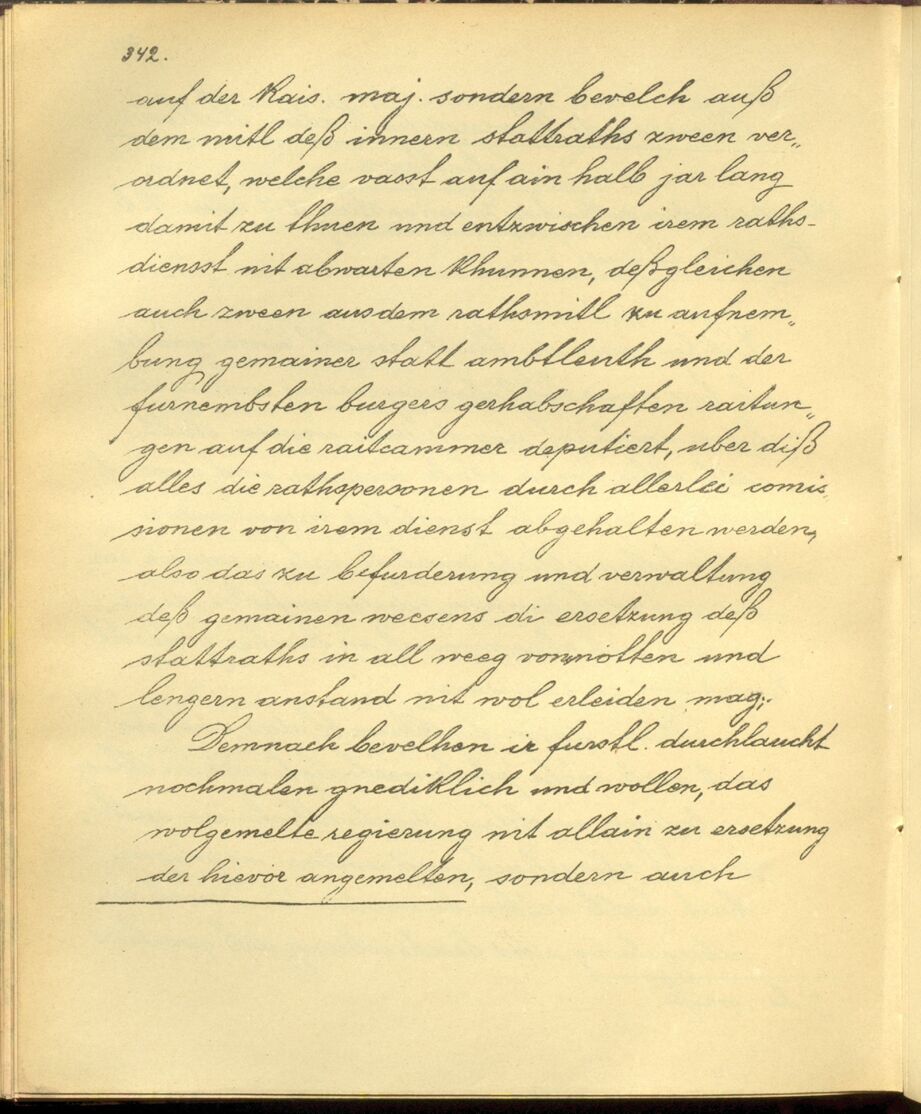 342.
auf der Kais. maj. sondern bevelch auß
dem mitl deß innern stattraths zween ver„
ordnet, welche vasst auf ain halb jar lang
damit zu thuen und entzwischen irem raths-
diensst nit abwarten khunnen, deßgleichen
auch zween aus dem rathsmitl zu aufnem„
bung gemainer statt ambtleuth und der
furnembsten burgers gerhabschaften raitun„
gen auf die raitcammer deputiert, uber diß
alles die rathspersonen durch allerlei comis
sionen von irem dienst abgehalten werden,
also das zu befurderung und verwaltung
deß gemainen weesens di ersetzung deß
stattraths in all weeg vonnötten und
lengern anstand nit wol erleiden mag;
Demnach bevelhen ir furstl. durchlaucht
nochmalen gnediklich und wollen, das
wolgemelte regierung nit allain zu ersetzung
der hievor angemelten, sondern auch